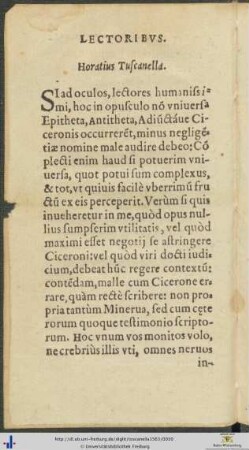 LECTORIBVS.
Horatius Tuscanella.
SI ad oculos, lectores humaniss i-
mi, hoc in opusculo nō vniuersa
Epitheta, Antitheta, Adiūctáue Ci-
ceronis occurrerēt, minus negligē-
tiæ nomine male audire debeo: Cō
plecti enim haud si potuerim vni-
uersa, quot potui sum complexus,
& tot, vt quiuis facilè vberrimū fru
ctū ex eis perceperit. Verùm si quis
inueheretur in me, quòd opus nul-
lius sumpserim vtilitatis, vel quòd
maximi esset negotij se astringere
Ciceroni: vel quòd viri docti iudi-
cium, debeat hūc regere contextū:
contēdam, malle cum Cicerone er-
rare, quàm rectè scribere: non pro-
pria tantùm Minerua, sed cum cęte
rorum quoque testimonio scripto-
rum. Hoc vnum vos monitos volo,
ne crebriùs illis vti, omnes neruos
in-
http://dl.ub.uni-freiburg.de/diglit/toscanella1563/0008
© Universitätsbibliothek Freiburg